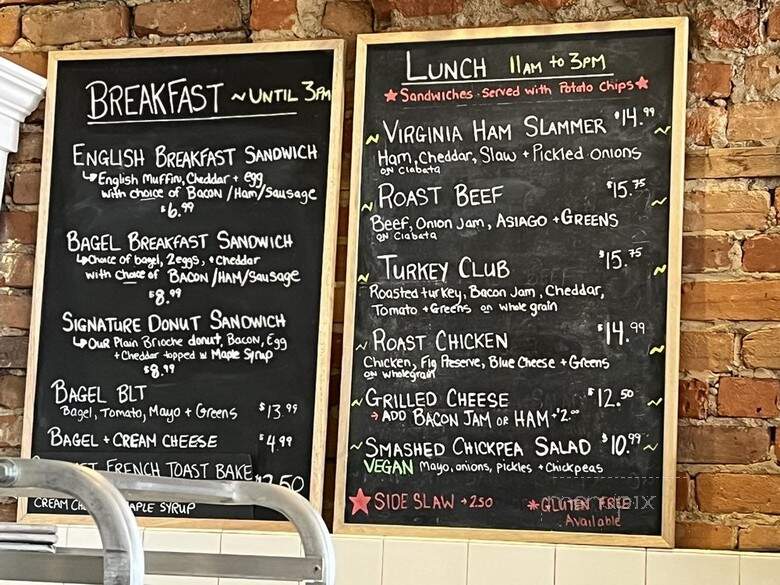 BREAKFAST ~ UNTIL 3PM
ENGLISH BREAKFAST SANDWICH
English Muffin, Cheddar + egg
with choice of BACON/Ham/Sausage
$6.99
BAGEL BREAKFAST SANDWICH
Choice of bagel, 2eggs, + cheddar
with choice of BACON/HAM/Sausage
$8.99
SIGNATURE DONUT SANDWICH
OUR Plain Brioche donut, Bacon, Egg
+ Cheddar topped w Maple Syrup
$8.99
BAGEL BLT
Bagel, Tomato, Mayo + Greens $13.99
BAGEL + CREAM CHEESE $4.99
FRENCH TOAST BAKE
.50
CREAM MAPLE SYRUP
LUNCH 11AM to 3PM
★ Sandwiches served with Potato Chips ★
~ VIRGINIA HAM SLAMMER $14.99 ~
Ham, Cheddar, Slaw + Pickled onions
on Ciabata
~ ROAST BEEF $15.75 ~
Beef, Onion Jam, ASIAGO + GREENS
ON Ciabata
~ TURKEY CLUB $15.75 ~
Roasted turkey, Bacon Jam, Cheddar,
Tomato + Greens on whole grain
~ ROAST CHICKEN $14.99 ~
Chicken, Fig Preserve, Blue Cheese + Greens
on wholegrain
~ GRILLED CHEESE $12.50 ~
→ ADD BACON JAM or HAM + $2.00
~ SMASHED CHICKPEA SALAD $10.99 ~
VEGAN Mayo, onions, pickles + Chickpeas
★ SIDE SLAW + 2.50 * GLUTEN FREE
Available